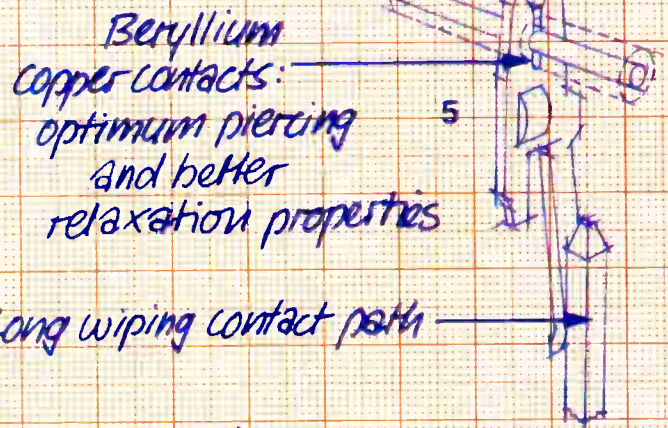 Beryllium
copper contacts:
optimum piercing
5
and better
relaxation properties
ong wiping contact path